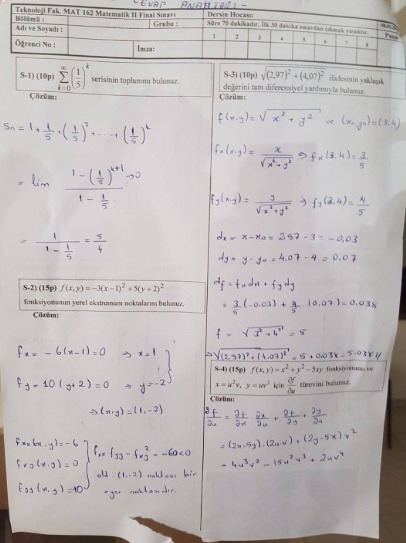 CEVAP ANAHTARI -
Teknoloji Fak. MAT 162 Matematik II Final Sınavı
Dersin Hocası:
Bölümü :
Grubu :
Süre 70 dakikadır. İlk 30 dakika sınavdan çıkmak yasaktır.
Adı ve Soyadı :
1 2 3 4 5 6 7 8
Öğrenci No :
İmza:
S-1) (10p) ∑_{k=0}^{∞} (1/5)^k serisinin toplamını bulunuz.
Çözüm:
Sn = 1 + 1/5 + (1/5)^2 + ... + (1/5)^k
= lim (1 - (1/5)^{k+1} → 0) / (1 - 1/5)
= 1 / (1 - 1/5) = 5/4
S-2) (15p) f(x,y) = -3(x-1)^2 + 5(y+2)^2
fonksiyonunun yerel ekstremum noktalarını bulunuz.
Çözüm:
fx = -6(x-1) = 0 ⇒ x = 1
fy = 10(y+2) = 0 ⇒ y = -2
⇒ (x,y) = (1,-2)
fxx(x,y) = -6
fxy(x,y) = 0
fyy(x,y) = 10
fxx·fyy - fxy^2 = -60 < 0
old. (1,-2) noktası bir
eyer noktasıdır.
S-3) (10p) √((2,97)^2 + (4,07)^2) ifadesinin yaklaşık
değerini tam diferensiyel yardımıyla bulunuz.
Çözüm:
f(x,y) = √(x^2 + y^2) (x0,y0) = (3,4)
fx(x,y) = x/√(x^2+y^2) ⇒ fx(3,4) = 3/5
fy(x,y) = y/√(x^2+y^2) ⇒ fy(3,4) = 4/5
dx = x - x0 = 2.97 - 3 = -0.03
dy = y - y0 = 4.07 - 4 = 0.07
df = fx dx + fy dy
= 3/5 (-0.03) + 4/5 (0.07) = 0.038
f = √(3^2 + 4^2) = 5
⇒ √((2,97)^2 + (4,07)^2) = 5 + 0.038 = 5.038 //
S-4) (15p) f(x,y) = x^2 + y^2 - 5xy fonksiyonunu ve
x = u^2v, y = uv^2 için ∂f/∂u türevini bulunuz.
Çözüm:
∂f/∂u = ∂f/∂x · ∂x/∂u + ∂f/∂y · ∂y/∂u
= (2x-5y).(2uv) + (2y-5x) v^2
= 4u^3v^2 - 15u^2v^3 + 2uv^4